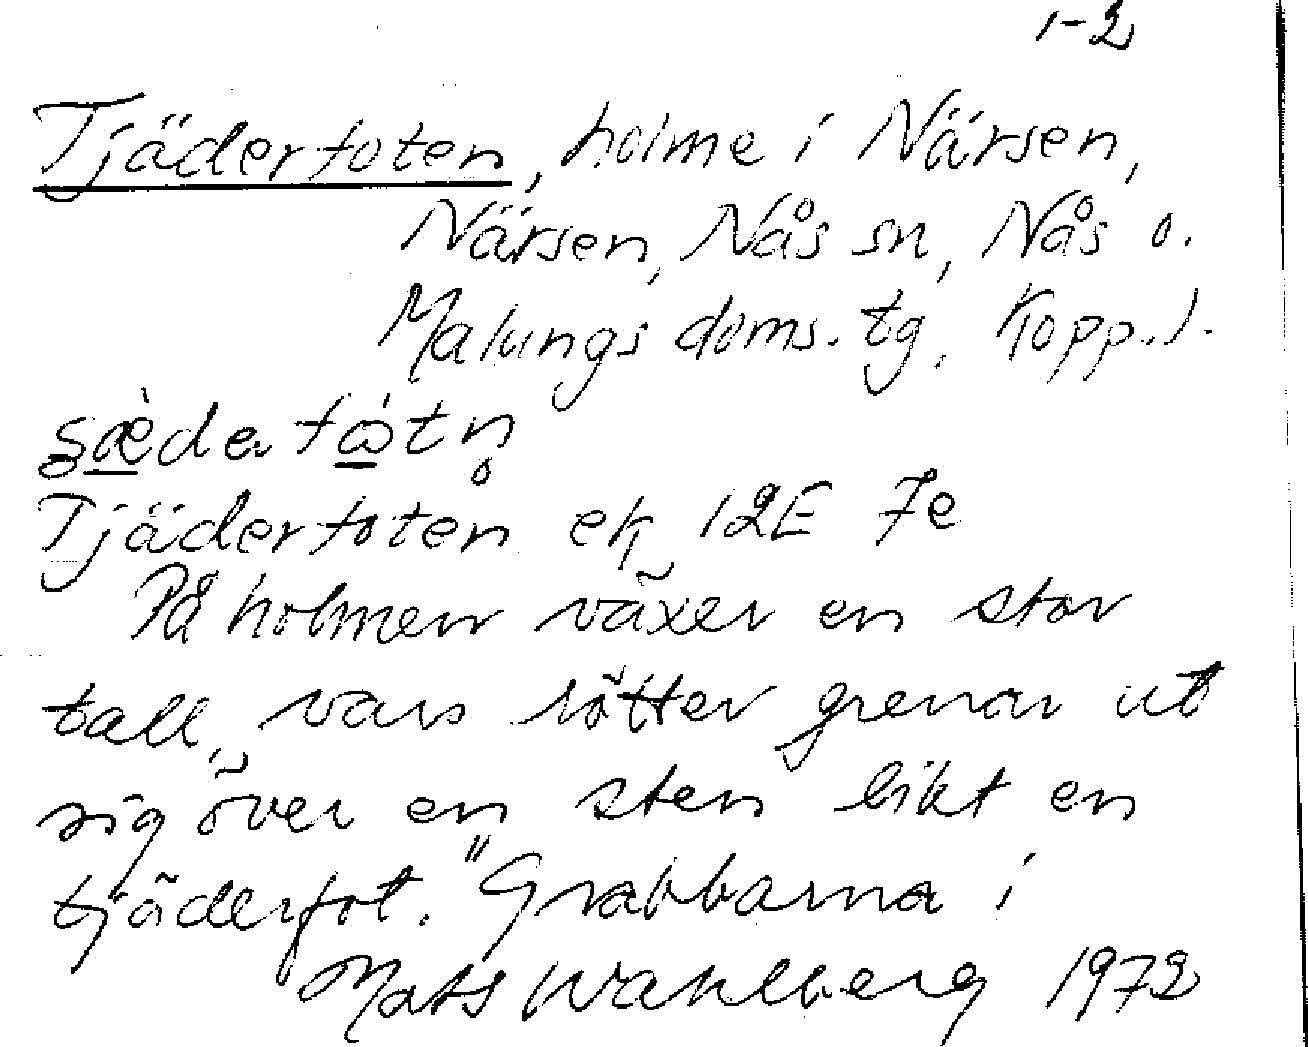 1-2
Tjäderfoten, holme i Närsen,
Närsen, Nås sn, Nås o.
Malungs doms. tg. Kopp. l.
Tjäderfoten ek 12E 7e
På holmen växer en stor
tall, vars rötter grenar ut
sig över en sten likt en
tjäderfot. "Grabbarna i
Mats Wahlberg 1972